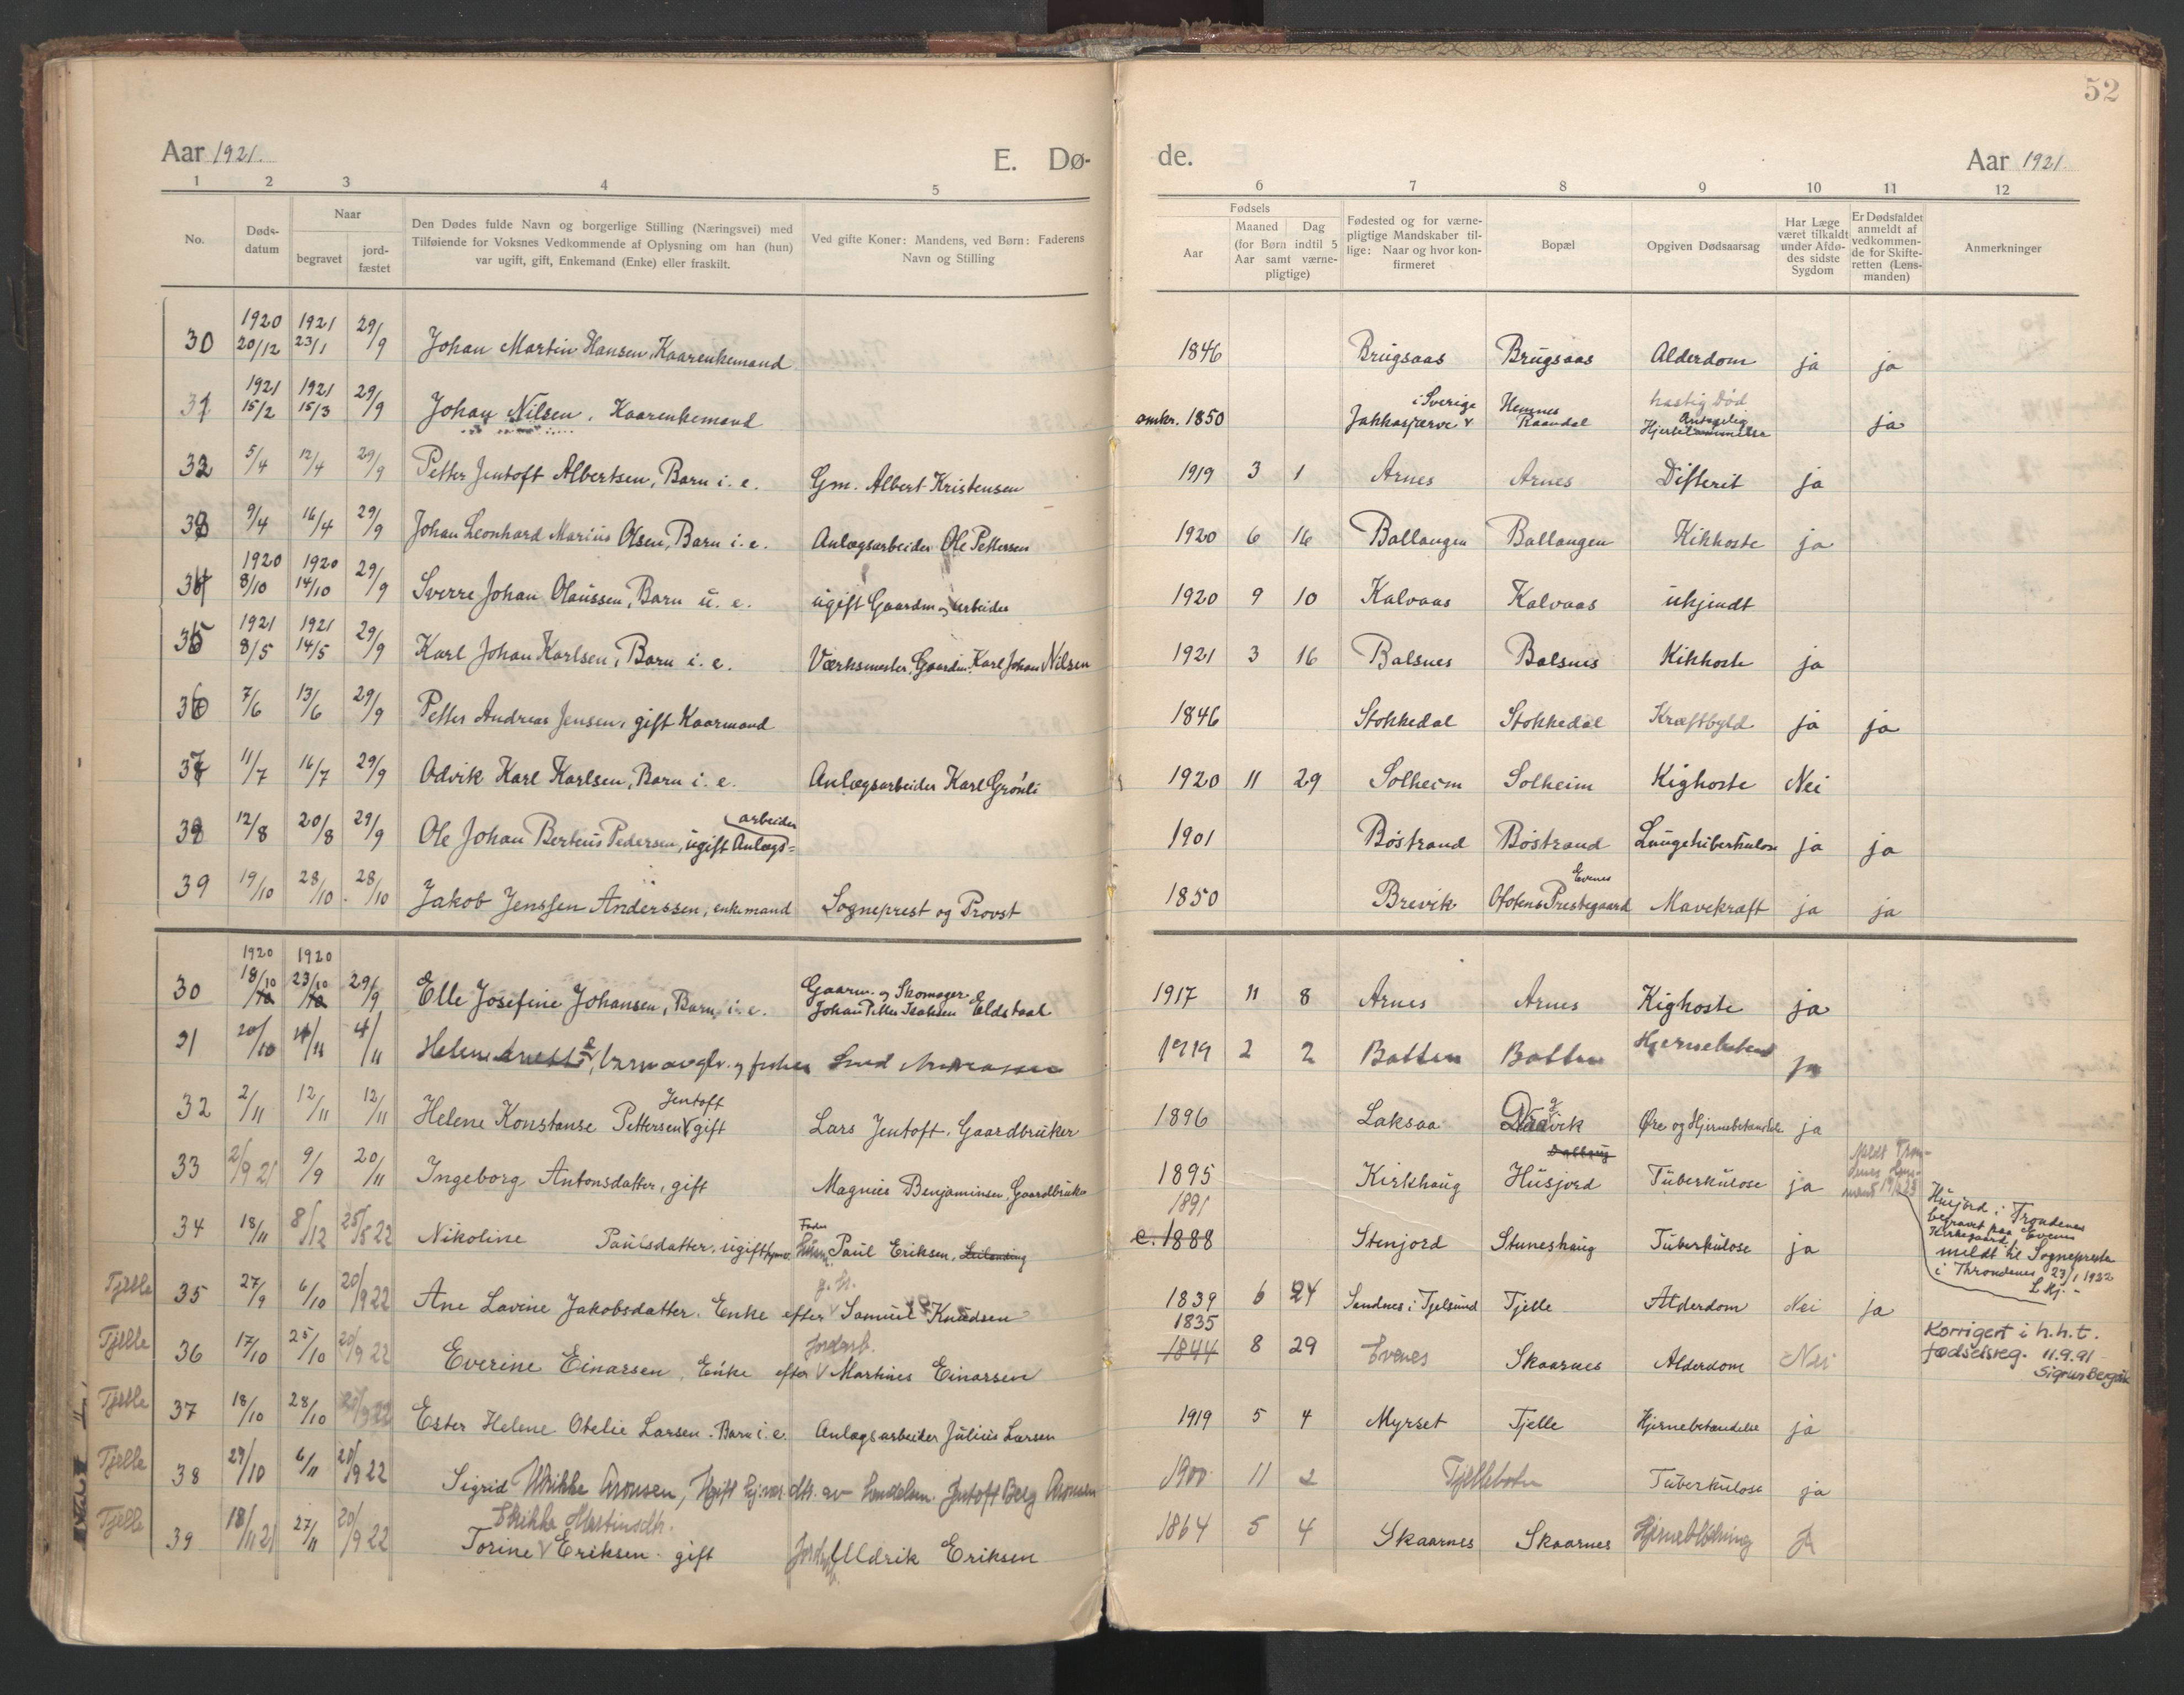 52
Aar 1921. E. Dø- de. Aar 1921.
1 2 3 4 5 6 7 8 9 10 11 12
No.
Døds-
datum
Naar
begravet
jord-
fæstet
Den Dødes fulde Navn og borgerlige Stilling (Næringsvei) med
Tilføiende for Voksnes Vedkommende af Oplysning om han (hun)
var ugift, gift, Enkemand (Enke) eller fraskilt.
Ved gifte Koner: Mandens, ved Børn: Faderens
Navn og Stilling
Fødsels
Aar
Maaned Dag
(for Børn indtil 5
Aar samt værne-
pligtige)
Fødested og for værne-
pligtige Mandskaber til-
lige: Naar og hvor kon-
firmeret
Bopæl
Opgiven Dødsaarsag
Har Læge
været tilkaldt
under Afdø-
des sidste
Sygdom
Er Dødsfaldet
anmeldt af
vedkommen-
de for Skifte-
retten (Lens-
manden)
Anmerkninger
1920 1921
30 20/12 23/1 29/9 Johan Martin Hansen, Kaarenkemand 1846 Brugsaas Brugsaas Alderdom ja ja
1921 1921 i Sverige Hemnes hastig Død
31 15/2 15/3 29/9 Johan Nilsen, Kaarenkemand omkr. 1850 Raandal Antagelig ja
32 5/4 12/4 29/9 Petter Jentoft Albertsen, Barn i. e. Gm. Albert Kristensen 1919 3 1 Arnes Arnes Difterit ja
33 9/4 16/4 29/9 Johan Leonhard Marius Olsen, Barn i. e. Anlægsarbeider Ole Pettersen 1920 6 16 Ballangen Ballangen Kikhoste ja
1920 1920
34 8/10 14/10 29/9 Sverre Johan Olaussen, Barn u. e. ugift Gaardm. og arbeider 1920 9 10 Kalvaas Kalvaas ukjendt
1921 1921
35 8/5 14/5 29/9 Karl Johan Karlsen, Barn i. e. Værksmester, Gaardm. Karl Johan Nilsen 1921 3 16 Balsnes Balsnes Kikhoste ja
36 7/6 13/6 29/9 Petter Andreas Jensen, gift Kaarmand 1846 Stokkedal Stokkedal Kræftbyld ja ja
37 11/7 16/7 29/9 Odvik Karl Karlsen, Barn i. e. Anlægsarbeider Karl Grønli 1920 11 29 Solheim Solheim Kighoste Nei
arbeider
38 12/8 20/8 29/9 Ole Johan Berteus Pedersen, ugift Anlægs= 1901 Bøstrand Bøstrand Lungetuberkulose ja ja
Evenes
39 19/10 28/10 28/10 Jakob Jenssen Anderssen, enkemand Sogneprest og Provst 1850 Brevik Ofotens Prestegaard Mavekræft ja ja
1920 1920
30 18/10 23/10 29/9 Elle Josefine Johansen, Barn i. e. Gaarm. og Skomager Johan Petter Isaksen Eldstaal 1917 11 8 Arnes Arnes Kighoste ja
31 20/10 4/11 Helene 1919 2 2 Botten Botten ja
Jentoft
32 2/11 12/11 12/11 Helene Konstanse Pettersen V gift Lars Jentoft, Gaardbruker 1896 Laksaa Øre og Hjernebetændelse ja
33 2/9 21 9/9 20/11 Ingeborg Antonsdatter, gift Magnus Benjaminsen, Gaardbruker 1895 Kirkhaug Husjord Tuberkulose ja
Husjord i Trondenes
begravet paa Evenes
Kirkegaard,
meldt til Sognepresten
i Throndenes 23/1 1922
L.Kj.
1891
34 18/11 8/12 25/5 22 Nikoline Paulsdatter, ugift Fader Paul Eriksen, c. 1888 Stenjord Stuneshaug Tuberkulose ja
Tjelle 35 27/9 6/10 20/9 22 Ane Lavine Jakobsdatter. Enke efter V Samuel Knudsen 1839 6 24 Sandnes i Tjelsund Tjelle Alderdom Nei ja
1835
Tjelle 36 17/10 25/10 20/9 22 Everine Einarsen, Enke efter V Jordarb. Martines Einarsen 1844 8 29 Evenes Skaarnes Alderdom Nei
Korrigert i h.h.t.
fødselsreg. 11.9.91
Sigrun Bergvik
Tjelle 37 18/10 28/10 20/9 22 Ester Helene Otelie Larsen. Barn i. e. Anlægsarbeider Julius Larsen 1919 5 4 Myrset Tjelle Hjernebetændelse ja
Tjelle 38 29/10 6/11 20/9 22 Sigrid Ulrikke Aronsen, Ugift dtr. av Jentoft Berg Aronsen 1900 11 2 Tjellebotn Tuberkulose ja
Martinsdtr.
Tjelle 39 18/11 21 27/11 20/9 22 Torine V Eriksen. gift Uldrik Eriksen 1864 5 4 Skaarnes Skaarnes Hjerneblødning ja